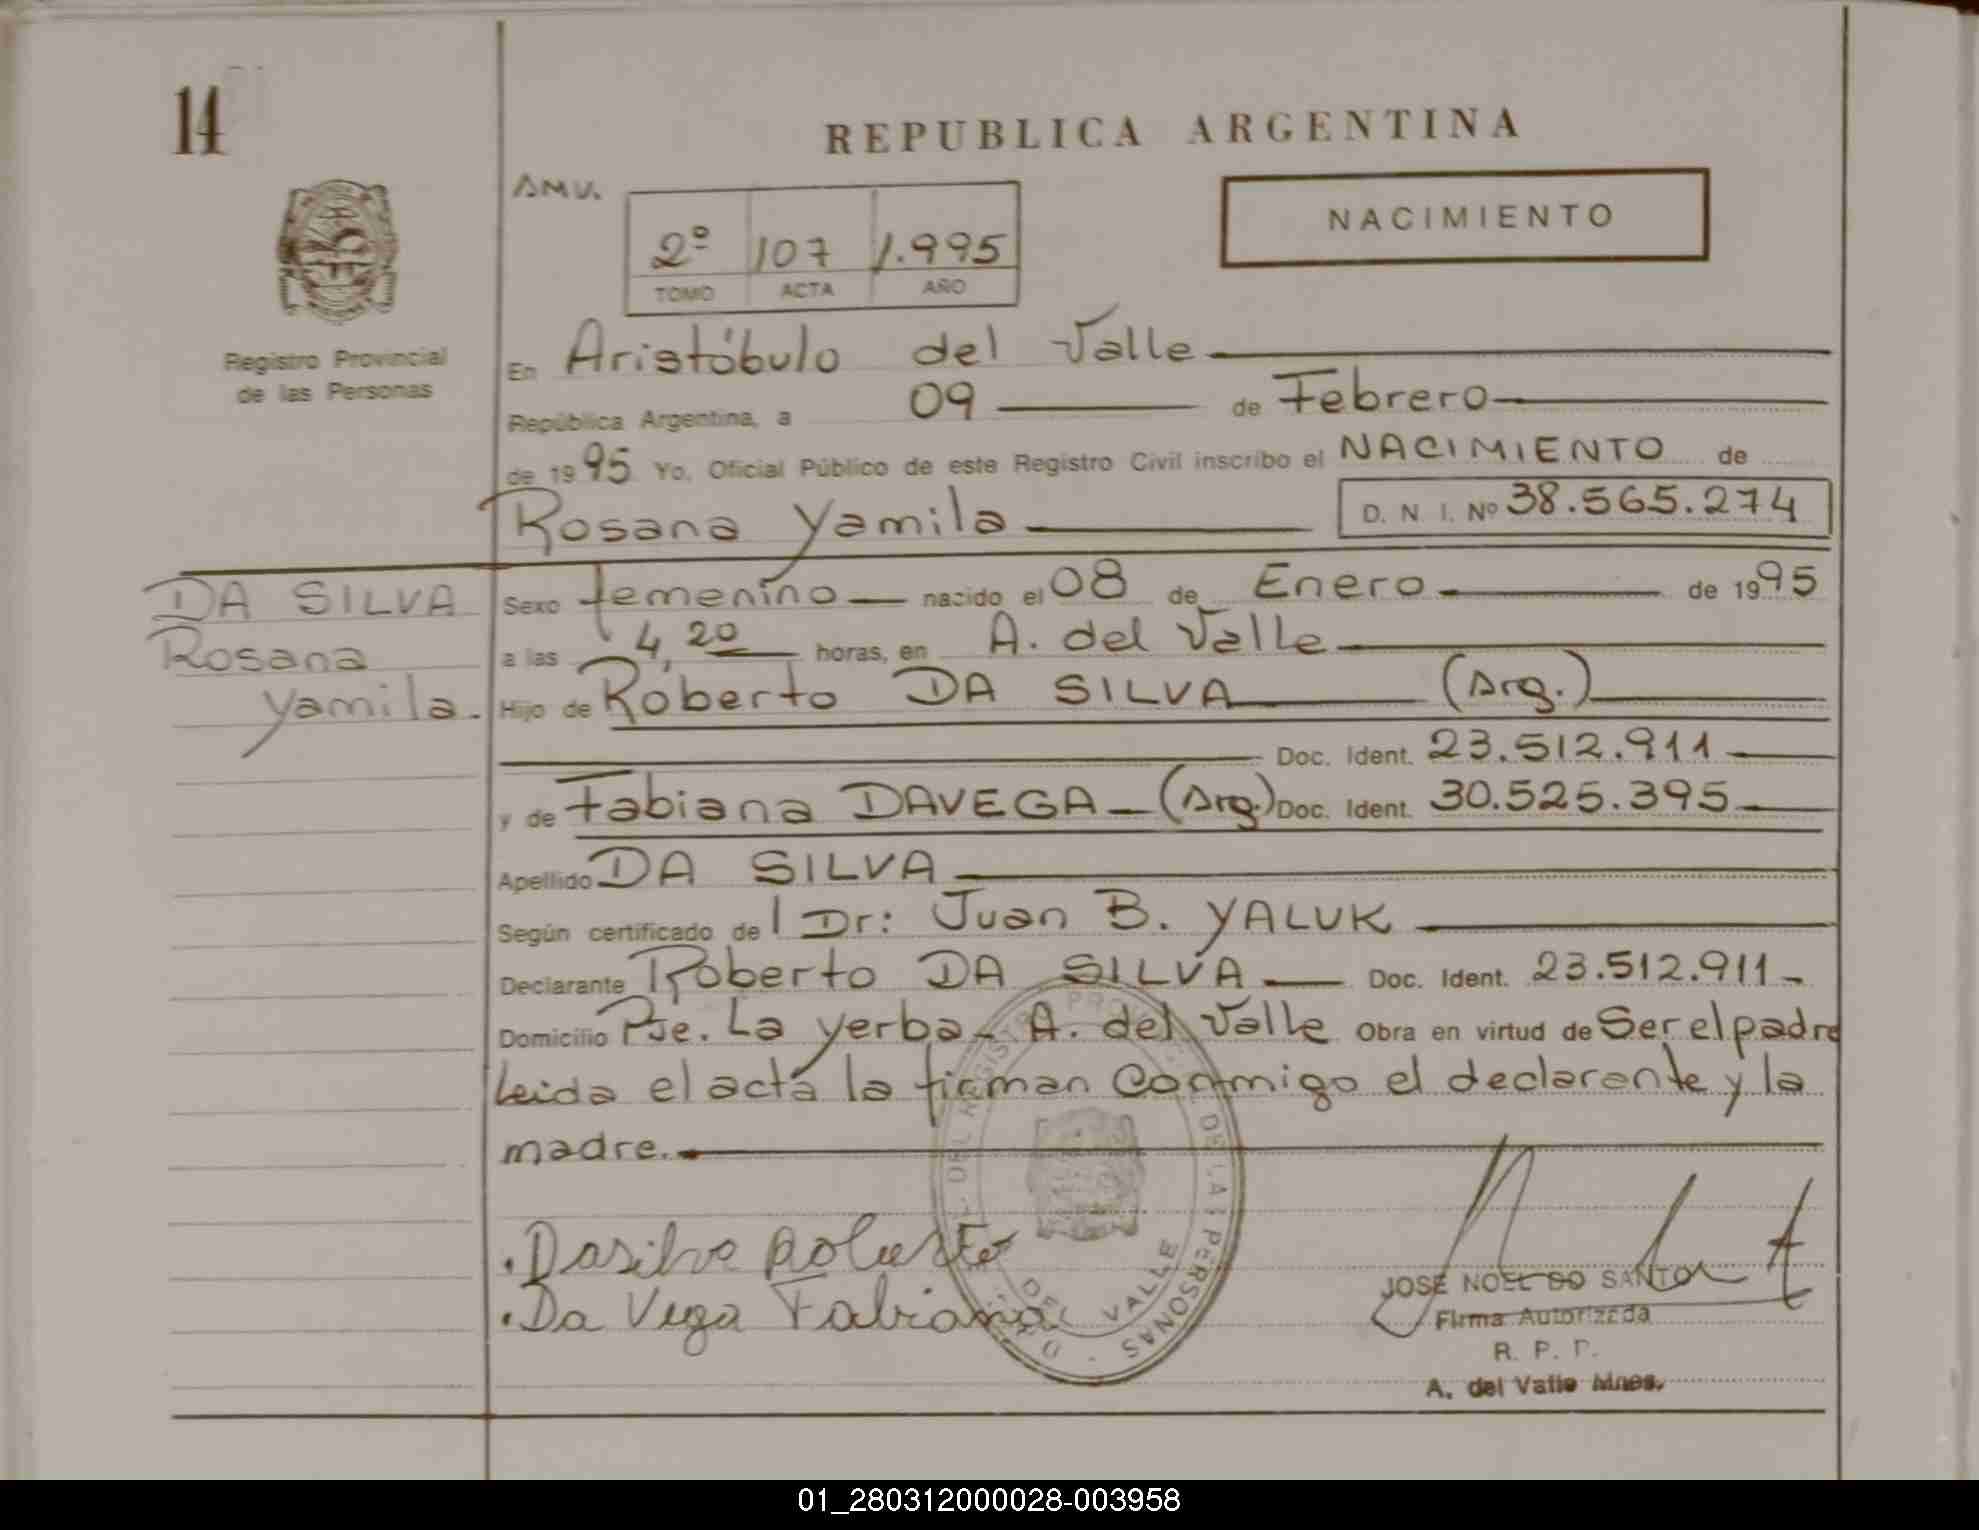 14
REPUBLICA ARGENTINA
AMV.
2º 107 1.995
TOMO ACTA AÑO
NACIMIENTO
Registro Provincial
de las Personas
En Aristóbulo del Valle
República Argentina, a 09 de Febrero
de 1995 Yo, Oficial Público de este Registro Civil inscribo el NACIMIENTO de
Rosana Yamila D. N. I. Nº 38.565.274
DA SILVA
Rosana
Yamila.
Sexo femenino nacido el 08 de Enero de 1995
a las 4,20 horas, en A. del Valle
Hijo de Roberto DA SILVA (Arg.)
Doc. Ident. 23.512.911
y de Fabiana DAVEGA (Arg.) Doc. Ident. 30.525.395
Apellido DA SILVA
Según certificado del Dr: Juan B. YALUK
Declarante Roberto DA SILVA Doc. Ident. 23.512.911
Domicilio Pje. La Yerba - A. del Valle Obra en virtud de Ser el padre
Leida el acta la firman conmigo el declarante y la
madre.
Dasilva Roberto
Da Vega Fabiana
DEL REGISTRO PROVINCIAL DE LAS PERSONAS
DEL VALLE
JOSE NOEL DO SANTO
Firma Autorizada
R. P. P.
A. del Valle Mnes.
01_280312000028-003958